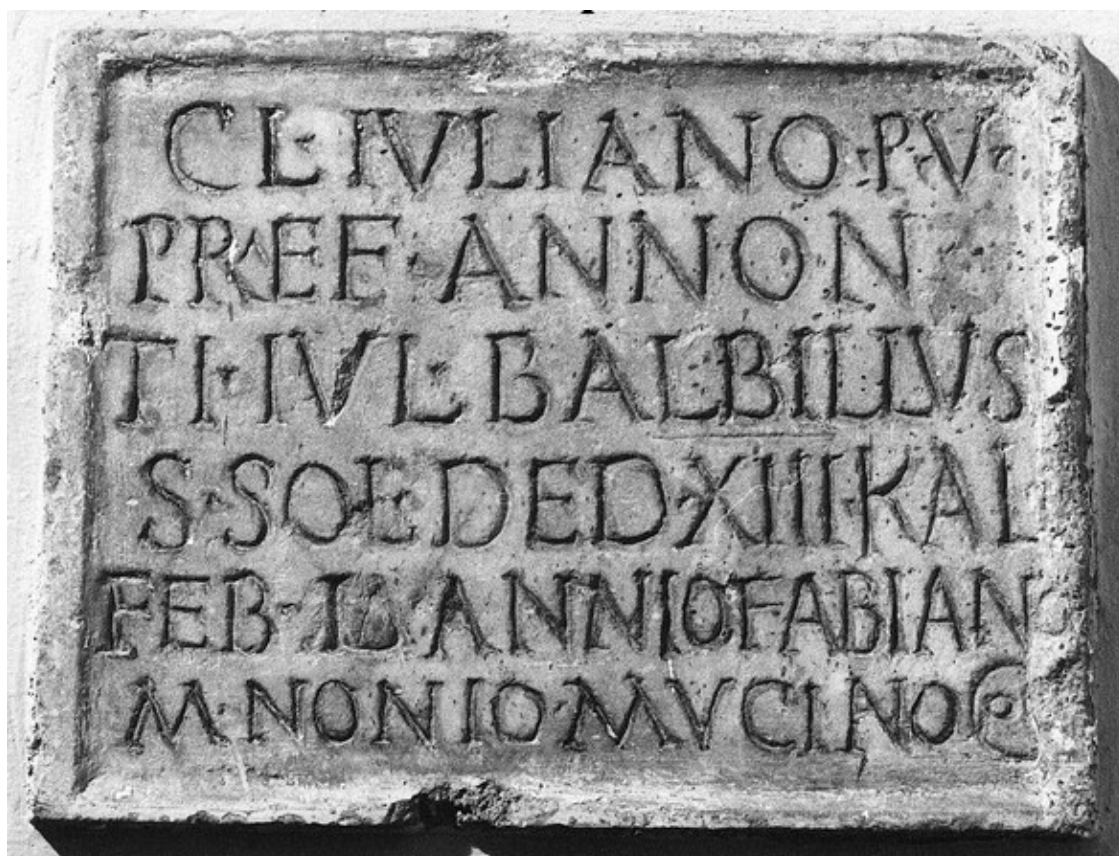 CL·IVLIANO·P·V·
PRÆF·ANNON
TI·IVL·BALBILLVS
S·SOL·DED·XIII·KAL
FEB·L·ANNIO FABIAN
M·NONIO·MVCINO